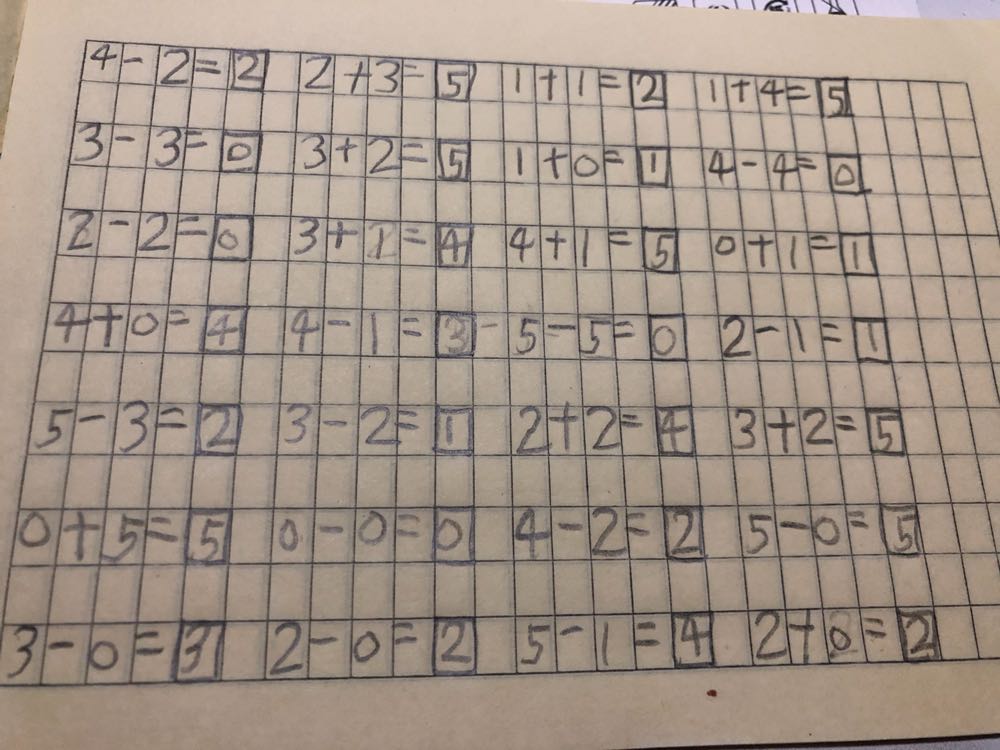 4-2=2 2+3=5 1+1=2 1+4=5
3-3=0 3+2=5 1+0=1 4-4=0
2-2=0 3+1=4 4+1=5 0+1=1
4+0=4 4-1=3 5-5=0 2-1=1
5-3=2 3-2=1 2+2=4 3+2=5
0+5=5 0-0=0 4-2=2 5-0=5
3-0=3 2-0=2 5-1=4 2+0=2